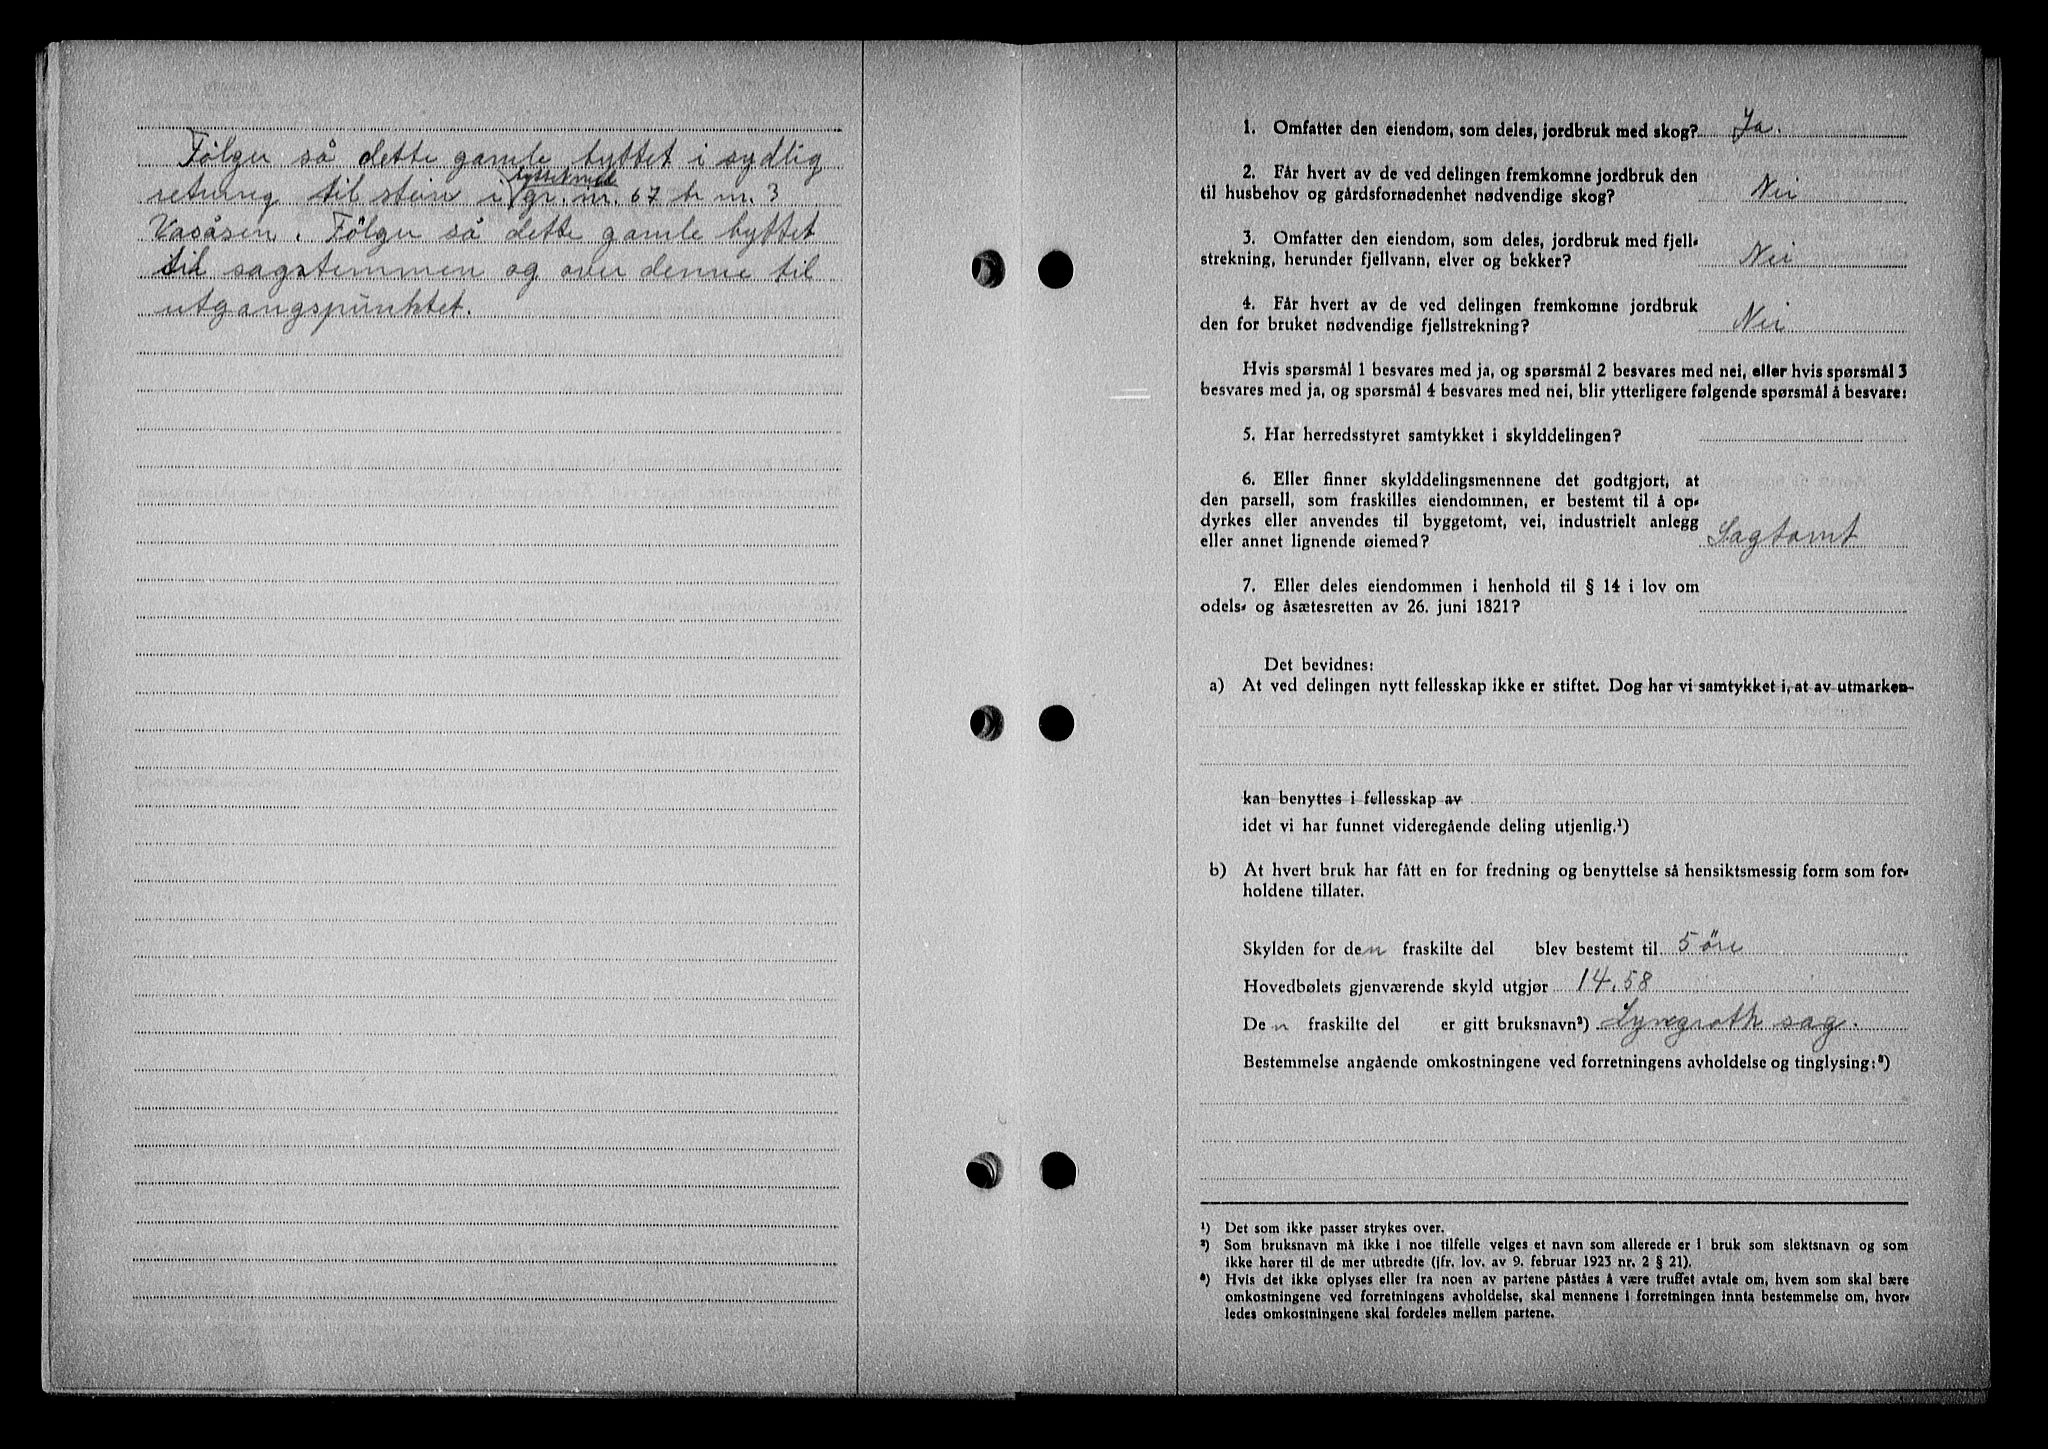 Følger så dette gamle byttet i sydlig
retning til stein i byttet med gr. nr. 67 br nr. 3
Vasåsen. Følger så dette gamle byttet
til sagstemmen og over denne til
utgangspunktet.
1. Omfatter den eiendom, som deles, jordbruk med skog? Ja.
2. Får hvert av de ved delingen fremkomne jordbruk den
til husbehov og gårdsfornødenhet nødvendige skog? Nei
3. Omfatter den eiendom, som deles, jordbruk med fjell-
strekning, herunder fjellvann, elver og bekker? Nei
4. Får hvert av de ved delingen fremkomne jordbruk
den for bruket nødvendige fjellstrekning? Nei
Hvis spørsmål 1 besvares med ja, og spørsmål 2 besvares med nei, eller hvis spørsmål 3
besvares med ja, og spørsmål 4 besvares med nei, blir ytterligere følgende spørsmål å besvare:
5. Har herredsstyret samtykket i skylddelingen?
6. Eller finner skylddelingsmennene det godtgjort, at
den parsell, som fraskilles eiendommen, er bestemt til å op-
dyrkes eller anvendes til byggetomt, vei, industrielt anlegg
eller annet lignende øiemed? Sagtomt
7. Eller deles eiendommen i henhold til § 14 i lov om
odels- og åsætesretten av 26. juni 1821?
Det bevidnes:
a) At ved delingen nytt fellesskap ikke er stiftet. Dog har vi samtykket i, at av utmarken
kan benyttes i fellesskap av
idet vi har funnet videregående deling utjenlig.¹)
b) At hvert bruk har fått en for fredning og benyttelse så hensiktsmessig form som for-
holdene tillater.
Skylden for den fraskilte del blev bestemt til 5 öre
Hovedbølets gjenværende skyld utgjør 14,58
Den fraskilte del er gitt bruksnavn²) Lyngroth sag.
Bestemmelse angående omkostningene ved forretningens avholdelse og tinglysing:³)
¹) Det som ikke passer strykes over.
²) Som bruksnavn må ikke i noe tilfelle velges et navn som allerede er i bruk som slektsnavn og som
ikke hører til de mer utbredte (jfr. lov. av 9. februar 1923 nr. 2 § 21).
³) Hvis det ikke oplyses eller fra noen av partene påståes å være truffet avtale om, hvem som skal bære
omkostningene ved forretningens avholdelse, skal mennene i forretningen innta bestemmelse om, hvor-
ledes omkostningene skal fordeles mellem partene.